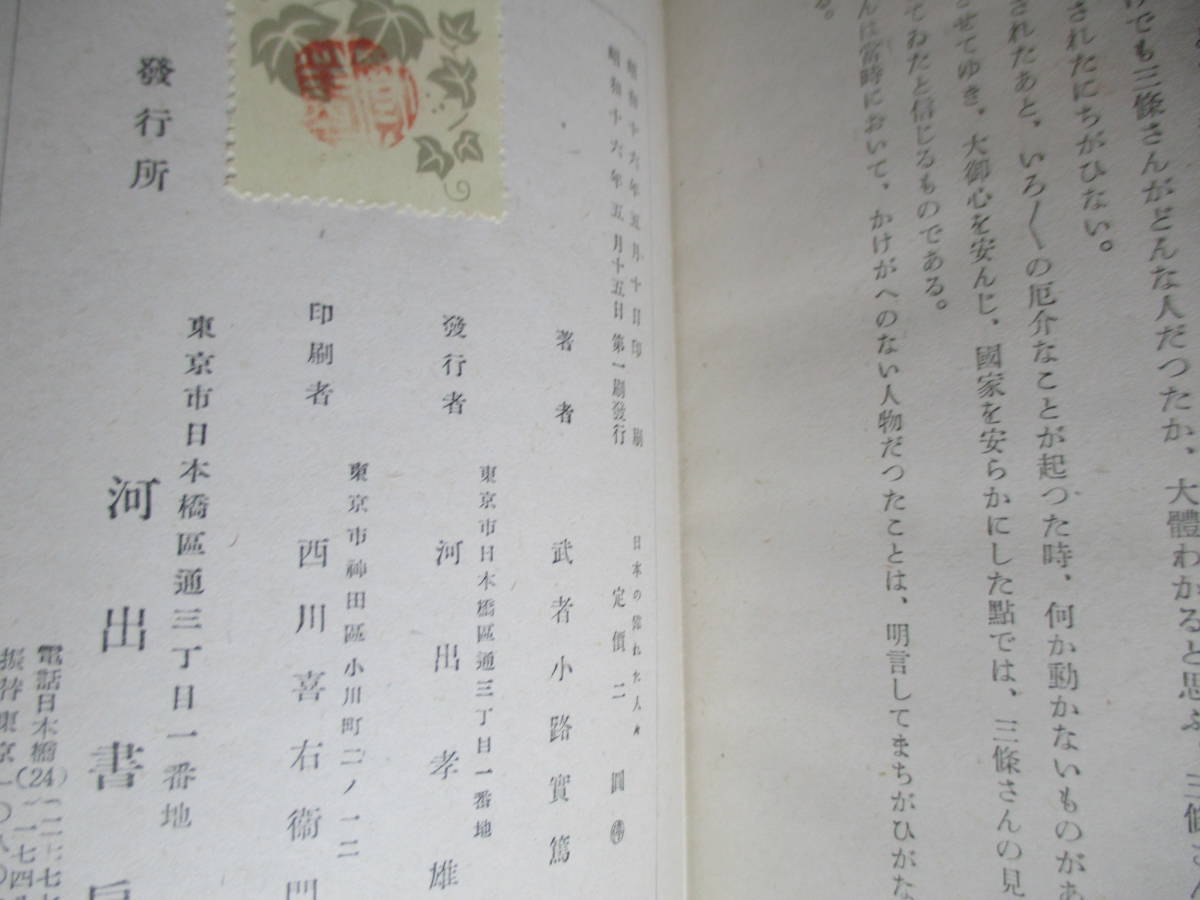 けでも三條さんがどんな人だつたか、大體わかると思ふ。三條さん
されたにちがひない。
されたあと、いろ〱の厄介なことが起つた時、何か動かないものがあ
させてゆき、大御心を安んじ、國家を安らかにした點では、三條さんの見
てゐたと信じるものである。
んは當時において、かけがへのない人物だつたことは、明言してまちがひがな
る。
昭和十六年五月十日印刷
昭和十六年五月十五日第一刷發行
日本の偉れた人々
定價二圓
著者
武者小路實篤
發行者
東京市日本橋區通三丁目一番地
河出孝雄
印刷者
東京市神田區小川町二ノ一二
西川喜右衞門
發行所
東京市日本橋區通三丁目一番地
河出書房
電話日本橋(24)
振替東京一〇八〇